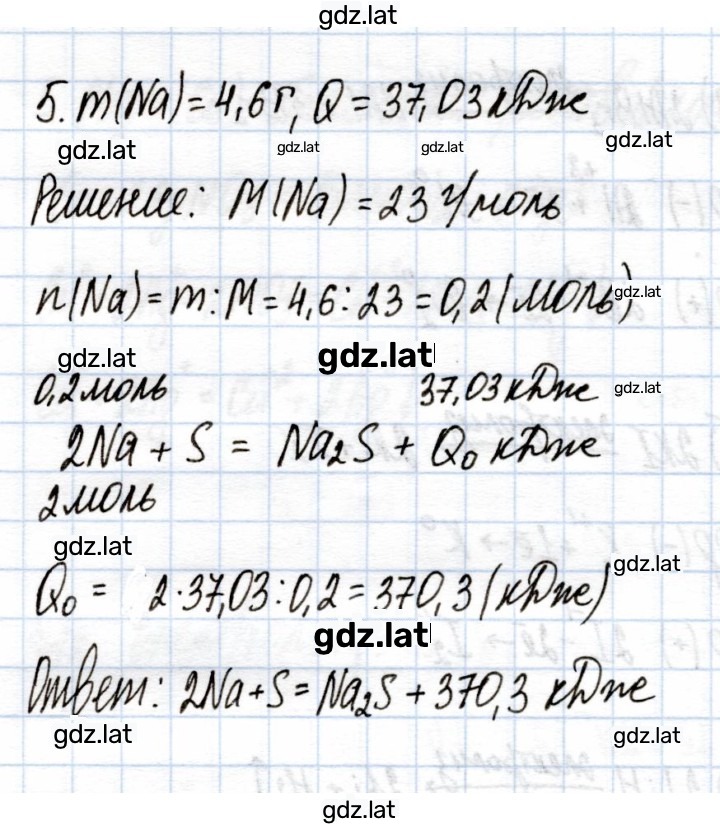 gdz.lat
5. m(Na) = 4,6 г, Q = 37,03 кДж
gdz.lat gdz.lat gdz.lat gdz.lat
Решение: M(Na) = 23 г/моль
n(Na) = m : M = 4,6 : 23 = 0,2 (моль)
gdz.lat
gdz.lat gdz.lat
0,2 моль 37,03 кДж
gdz.lat
2Na + S = Na₂S + Q₀ кДж
2 моль
gdz.lat gdz.lat
Q₀ = 2·37,03 : 0,2 = 370,3 (кДж)
gdz.lat
Ответ: 2Na + S = Na₂S + 370,3 кДж
gdz.lat gdz.lat
gdz.lat